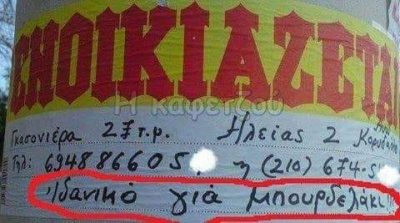 ΕΝΟΙΚΙΑΖΕΤΑΙ
Η καφετζού
Γκασονιέρα 27τ.μ. Ηλείας 2
Τηλ: 694886605 ή (210) 674.5
Ιδανικό γιά Μπουρδελάκι!!